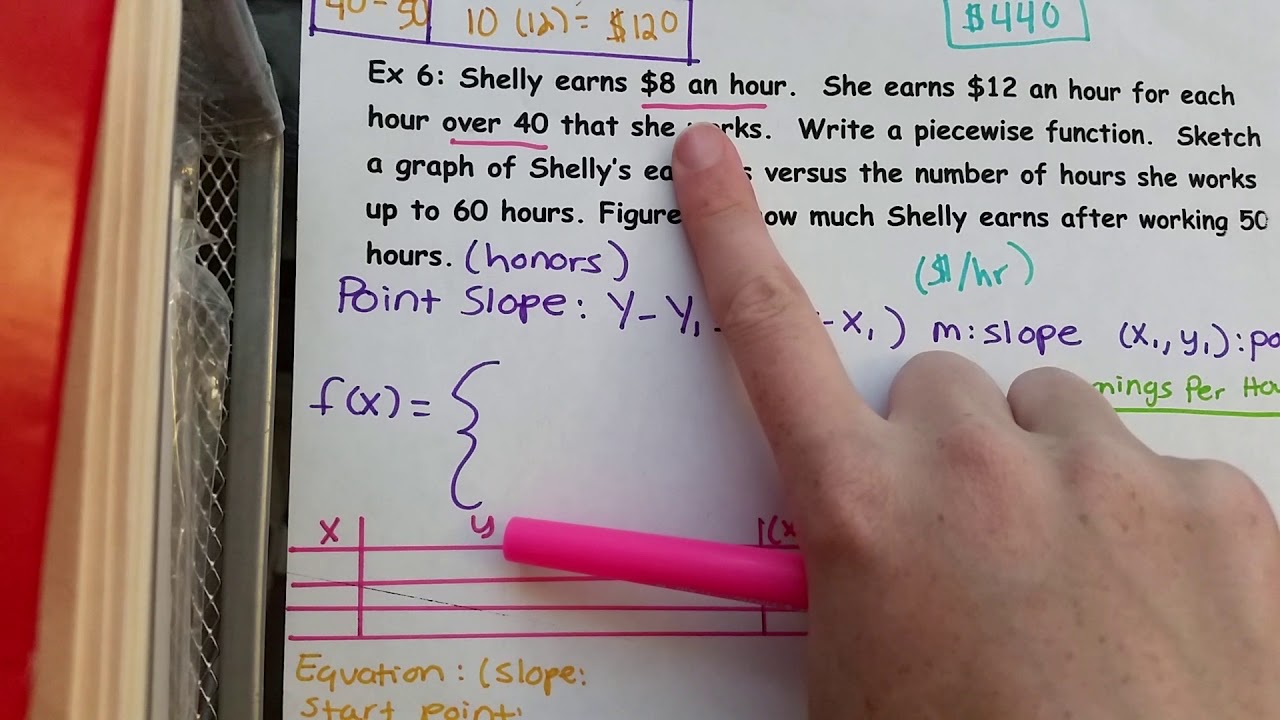 40 - 50 10 (12) = $120
$440
Ex 6: Shelly earns $8 an hour. She earns $12 an hour for each
hour over 40 that she works. Write a piecewise function. Sketch
a graph of Shelly's versus the number of hours she works
up to 60 hours. Figure how much Shelly earns after working 50
hours. (honors)
($/hr)
Point Slope: y - y₁ - x₁) m: slope (x₁, y₁):
f(x) = {
Per
x y (x
Equation: (slope:
start point: